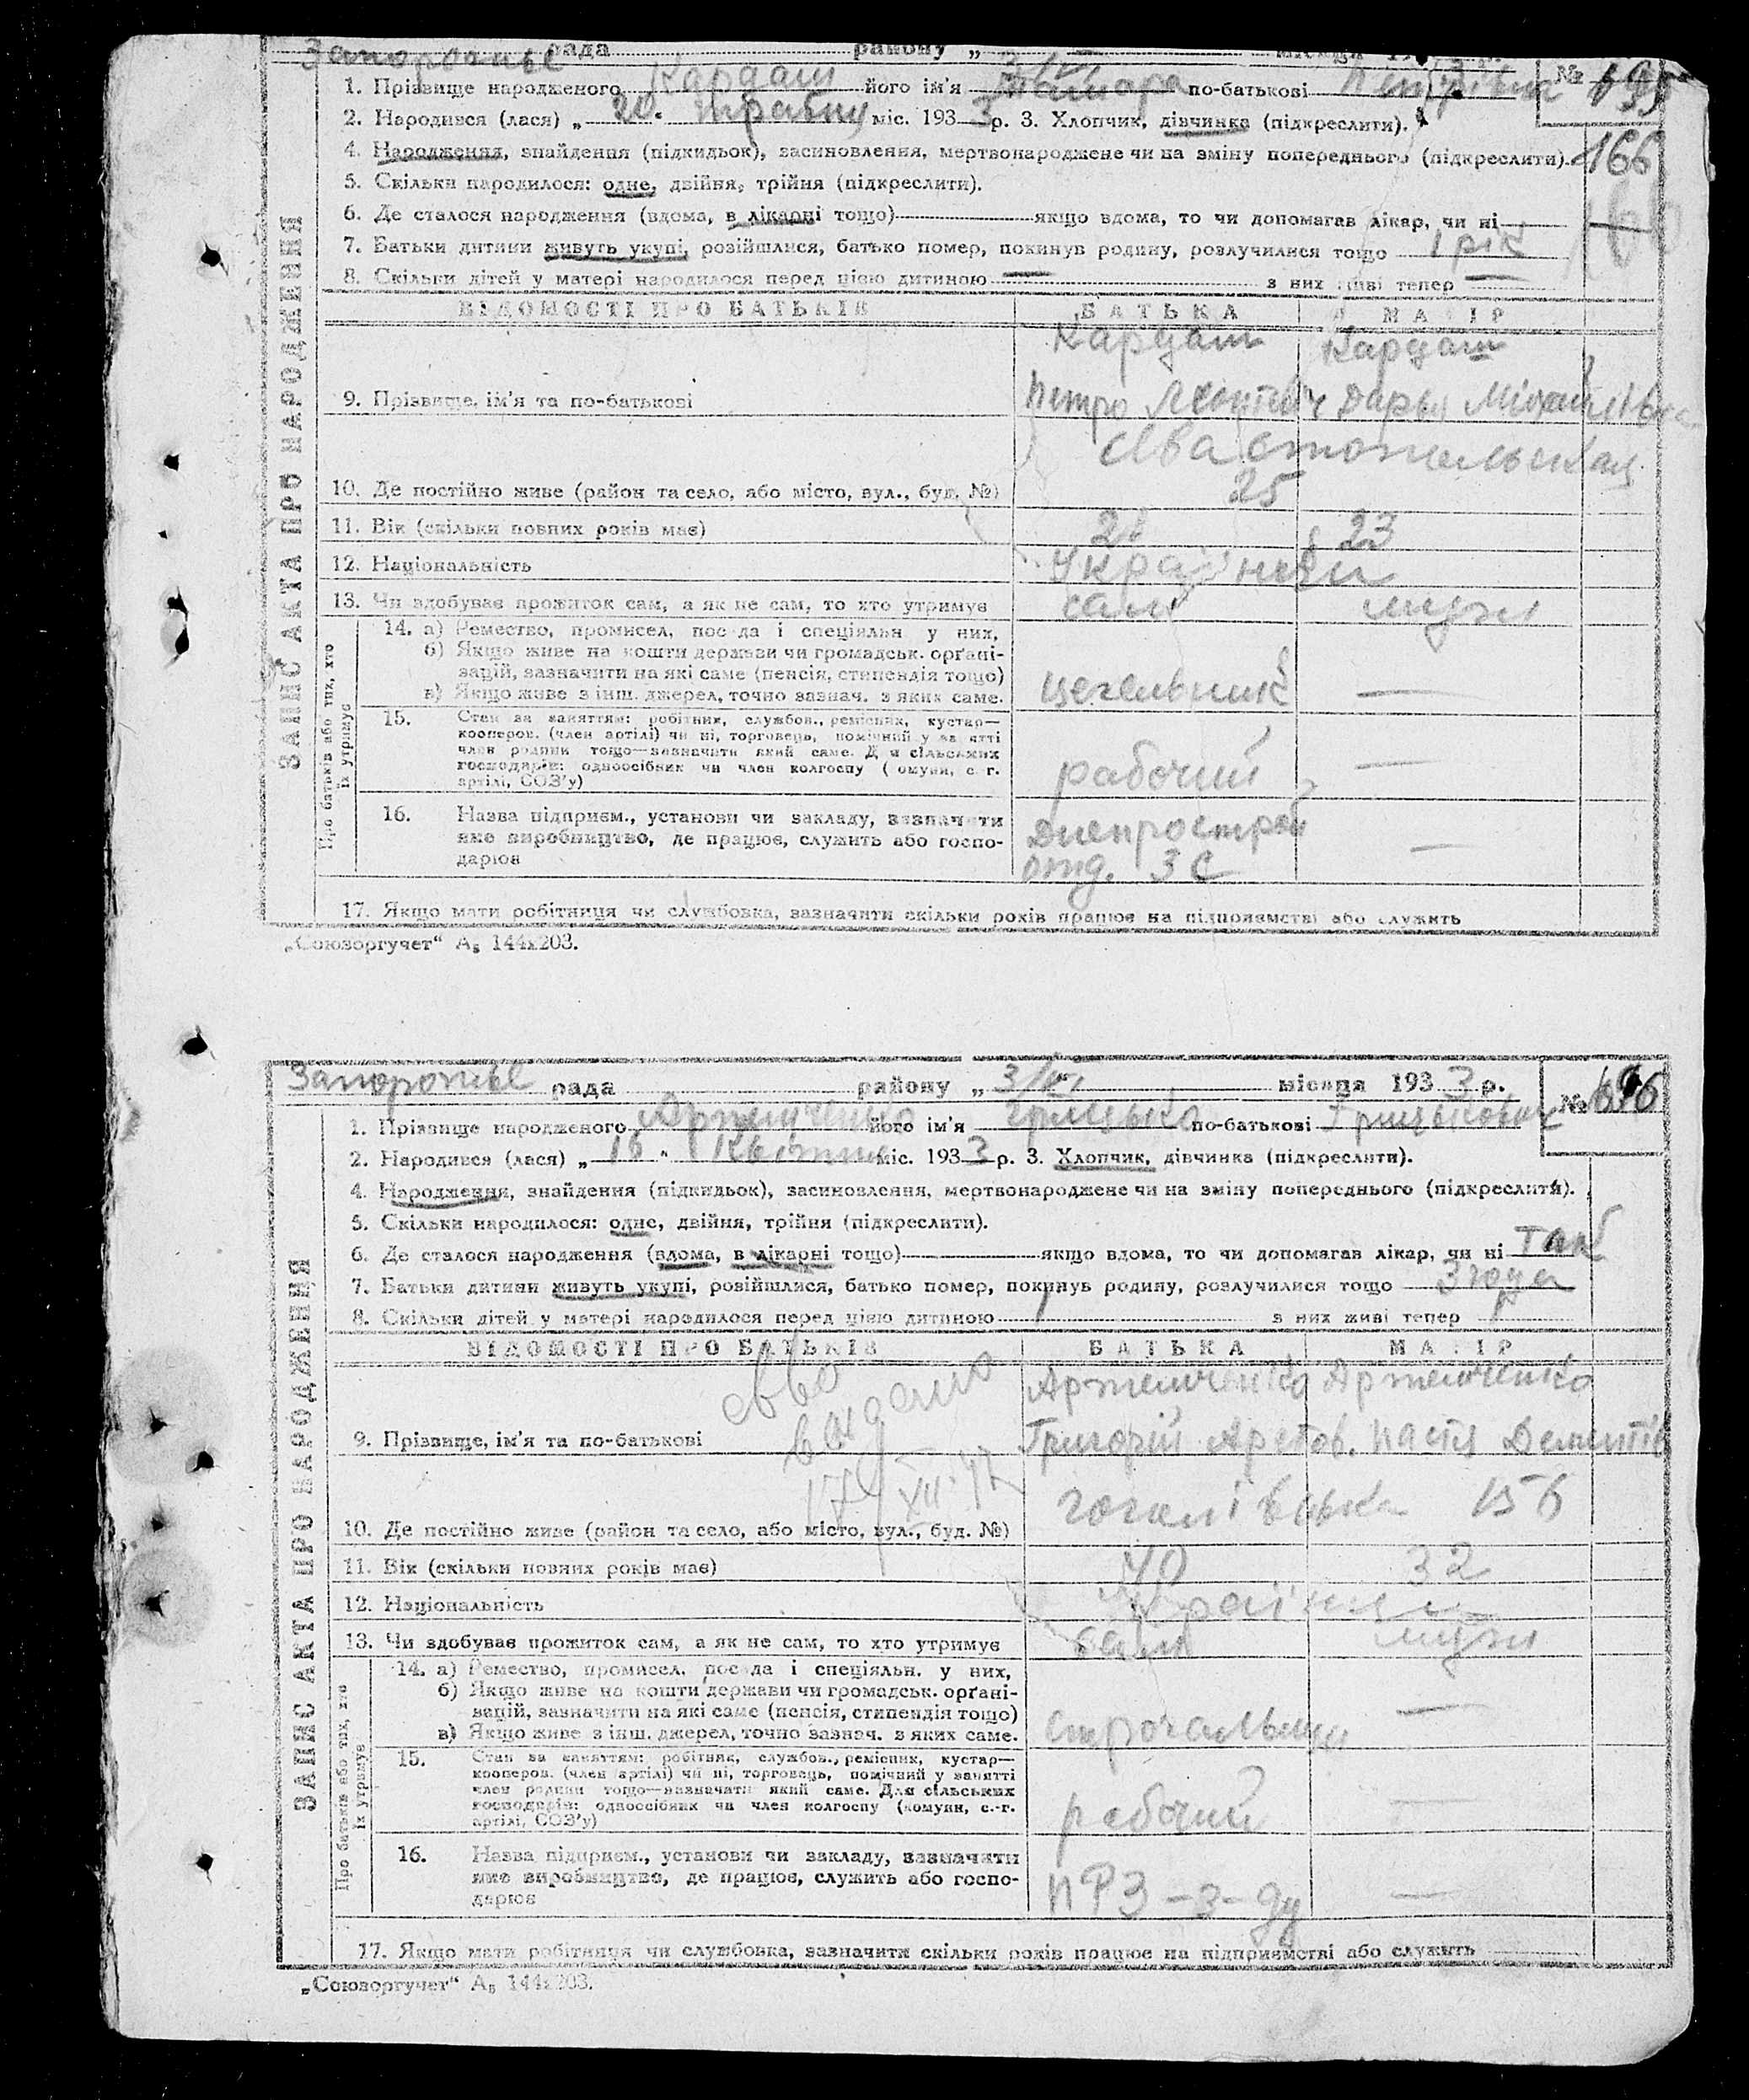 Запорожье рада району „
1. Прізвище народженого Кардаш його ім'я Тамара по-батькові Петрівна № 695
2. Народився (лася) „ 20 " травня міс. 193 3 р. 3. Хлопчик, дівчинка (підкреслити).
4. Народження, знайдення (підкидьок), засиновлення, мертвонароджене чи на зміну попереднього (підкреслити). 166
5. Скільки народилося: одне, двійня, трійня (підкреслити).
6. Де сталося народження (вдома, в лікарні тощо) — якщо вдома, то чи допомагав лікар, чи ні —
7. Батьки дитини живуть укупі, розійшлися, батько помер, покинув родину, розлучилися тощо 1 рік
8. Скільки дітей у матері народилося перед цією дитиною — з них живі тепер —
ЗАПИС АКТА ПРО НАРОДЖЕННЯ
ВІДОМОСТІ ПРО БАТЬКІВ БАТЬКА МАТІР
Кардаш Кардаш
9. Прізвище, ім'я та по-батькові Петро Леонтієвич Дарья Міхайлівна
25
10. Де постійно живе (район та село, або місто, вул., буд. №)
11. Вік (скільки повних років має) 23
12. Національність Українці
13. Чи здобуває прожиток сам, а як не сам, то хто утримує сам мужи
Про батьків або тих, хто їх утримує
14. а) Ремество, промисел, посада і спеціяльн. у них,
б) Якщо живе на кошти держави чи громадськ. орґані-
зацій, зазначити на які саме (пенсія, стипендія тощо) цегельник —
в) Якщо живе з інш. джерел, точно зазнач. з яких саме.
15. Стан за заняттям: робітник, службов., ремісник, кустар—
кооперов. (член артілі) чи ні, торговець, помічний у занятті
член родини тощо—зазначити який саме. Для сільських
господарів: одноосібник чи член колгоспу (комуни, с.-г. рабочий —
артілі, СОЗ'у)
16. Назва підприєм., установи чи закладу, зазначити
яке виробництво, де працює, служить або госпо- Днепрострой —
дарює отд. 3 С
17. Якщо мати робітниця чи службовка, зазначити скільки років працює на підприємстві або служить
„Союзоргучет“ А₅ 144х203.
Запорожье рада району „ 3/VI " місяця 193 3 р.
№ 696
1. Прізвище народженого Артемченко його ім'я Грицько по-батькові Грицькович
2. Народився (лася) „ 16 " Квітня міс. 193 3 р. 3. Хлопчик, дівчинка (підкреслити).
4. Народження, знайдення (підкидьок), засиновлення, мертвонароджене чи на зміну попереднього (підкреслити).
5. Скільки народилося: одне, двійня, трійня (підкреслити).
6. Де сталося народження (вдома, в лікарні тощо) — якщо вдома, то чи допомагав лікар, чи ні так
7. Батьки дитини живуть укупі, розійшлися, батько помер, покинув родину, розлучилися тощо 3 года
8. Скільки дітей у матері народилося перед цією дитиною 1 з них живі тепер
ЗАПИС АКТА ПРО НАРОДЖЕННЯ
ВІДОМОСТІ ПРО БАТЬКІВ БАТЬКА МАТІР
Артемченко Артемченко
9. Прізвище, ім'я та по-батькові Григорій Настя
гоголівська 156
10. Де постійно живе (район та село, або місто, вул., буд. №)
11. Вік (скільки повних років має) 40 32
12. Національність Українці
13. Чи здобуває прожиток сам, а як не сам, то хто утримує сам мужи
Про батьків або тих, хто їх утримує
14. а) Ремество, промисел, посада і спеціяльн. у них,
б) Якщо живе на кошти держави чи громадськ. орґані-
зацій, зазначити на які саме (пенсія, стипендія тощо) —
в) Якщо живе з інш. джерел, точно зазнач. з яких саме. строгальщик
15. Стан за заняттям: робітник, службов., ремісник, кустар—
кооперов. (член артілі) чи ні, торговець, помічний у занятті
член родини тощо—зазначити який саме. Для сільських
господарів: одноосібник чи член колгоспу (комуни, с.-г. рабочий —
артілі, СОЗ'у)
16. Назва підприєм., установи чи закладу, зазначити
яке виробництво, де працює, служить або госпо- ПРЗ - 3 - —
дарює
17. Якщо мати робітниця чи службовка, зазначити скільки років працює на підприємстві або служить
„Союзоргучет“ А₅ 144х203.